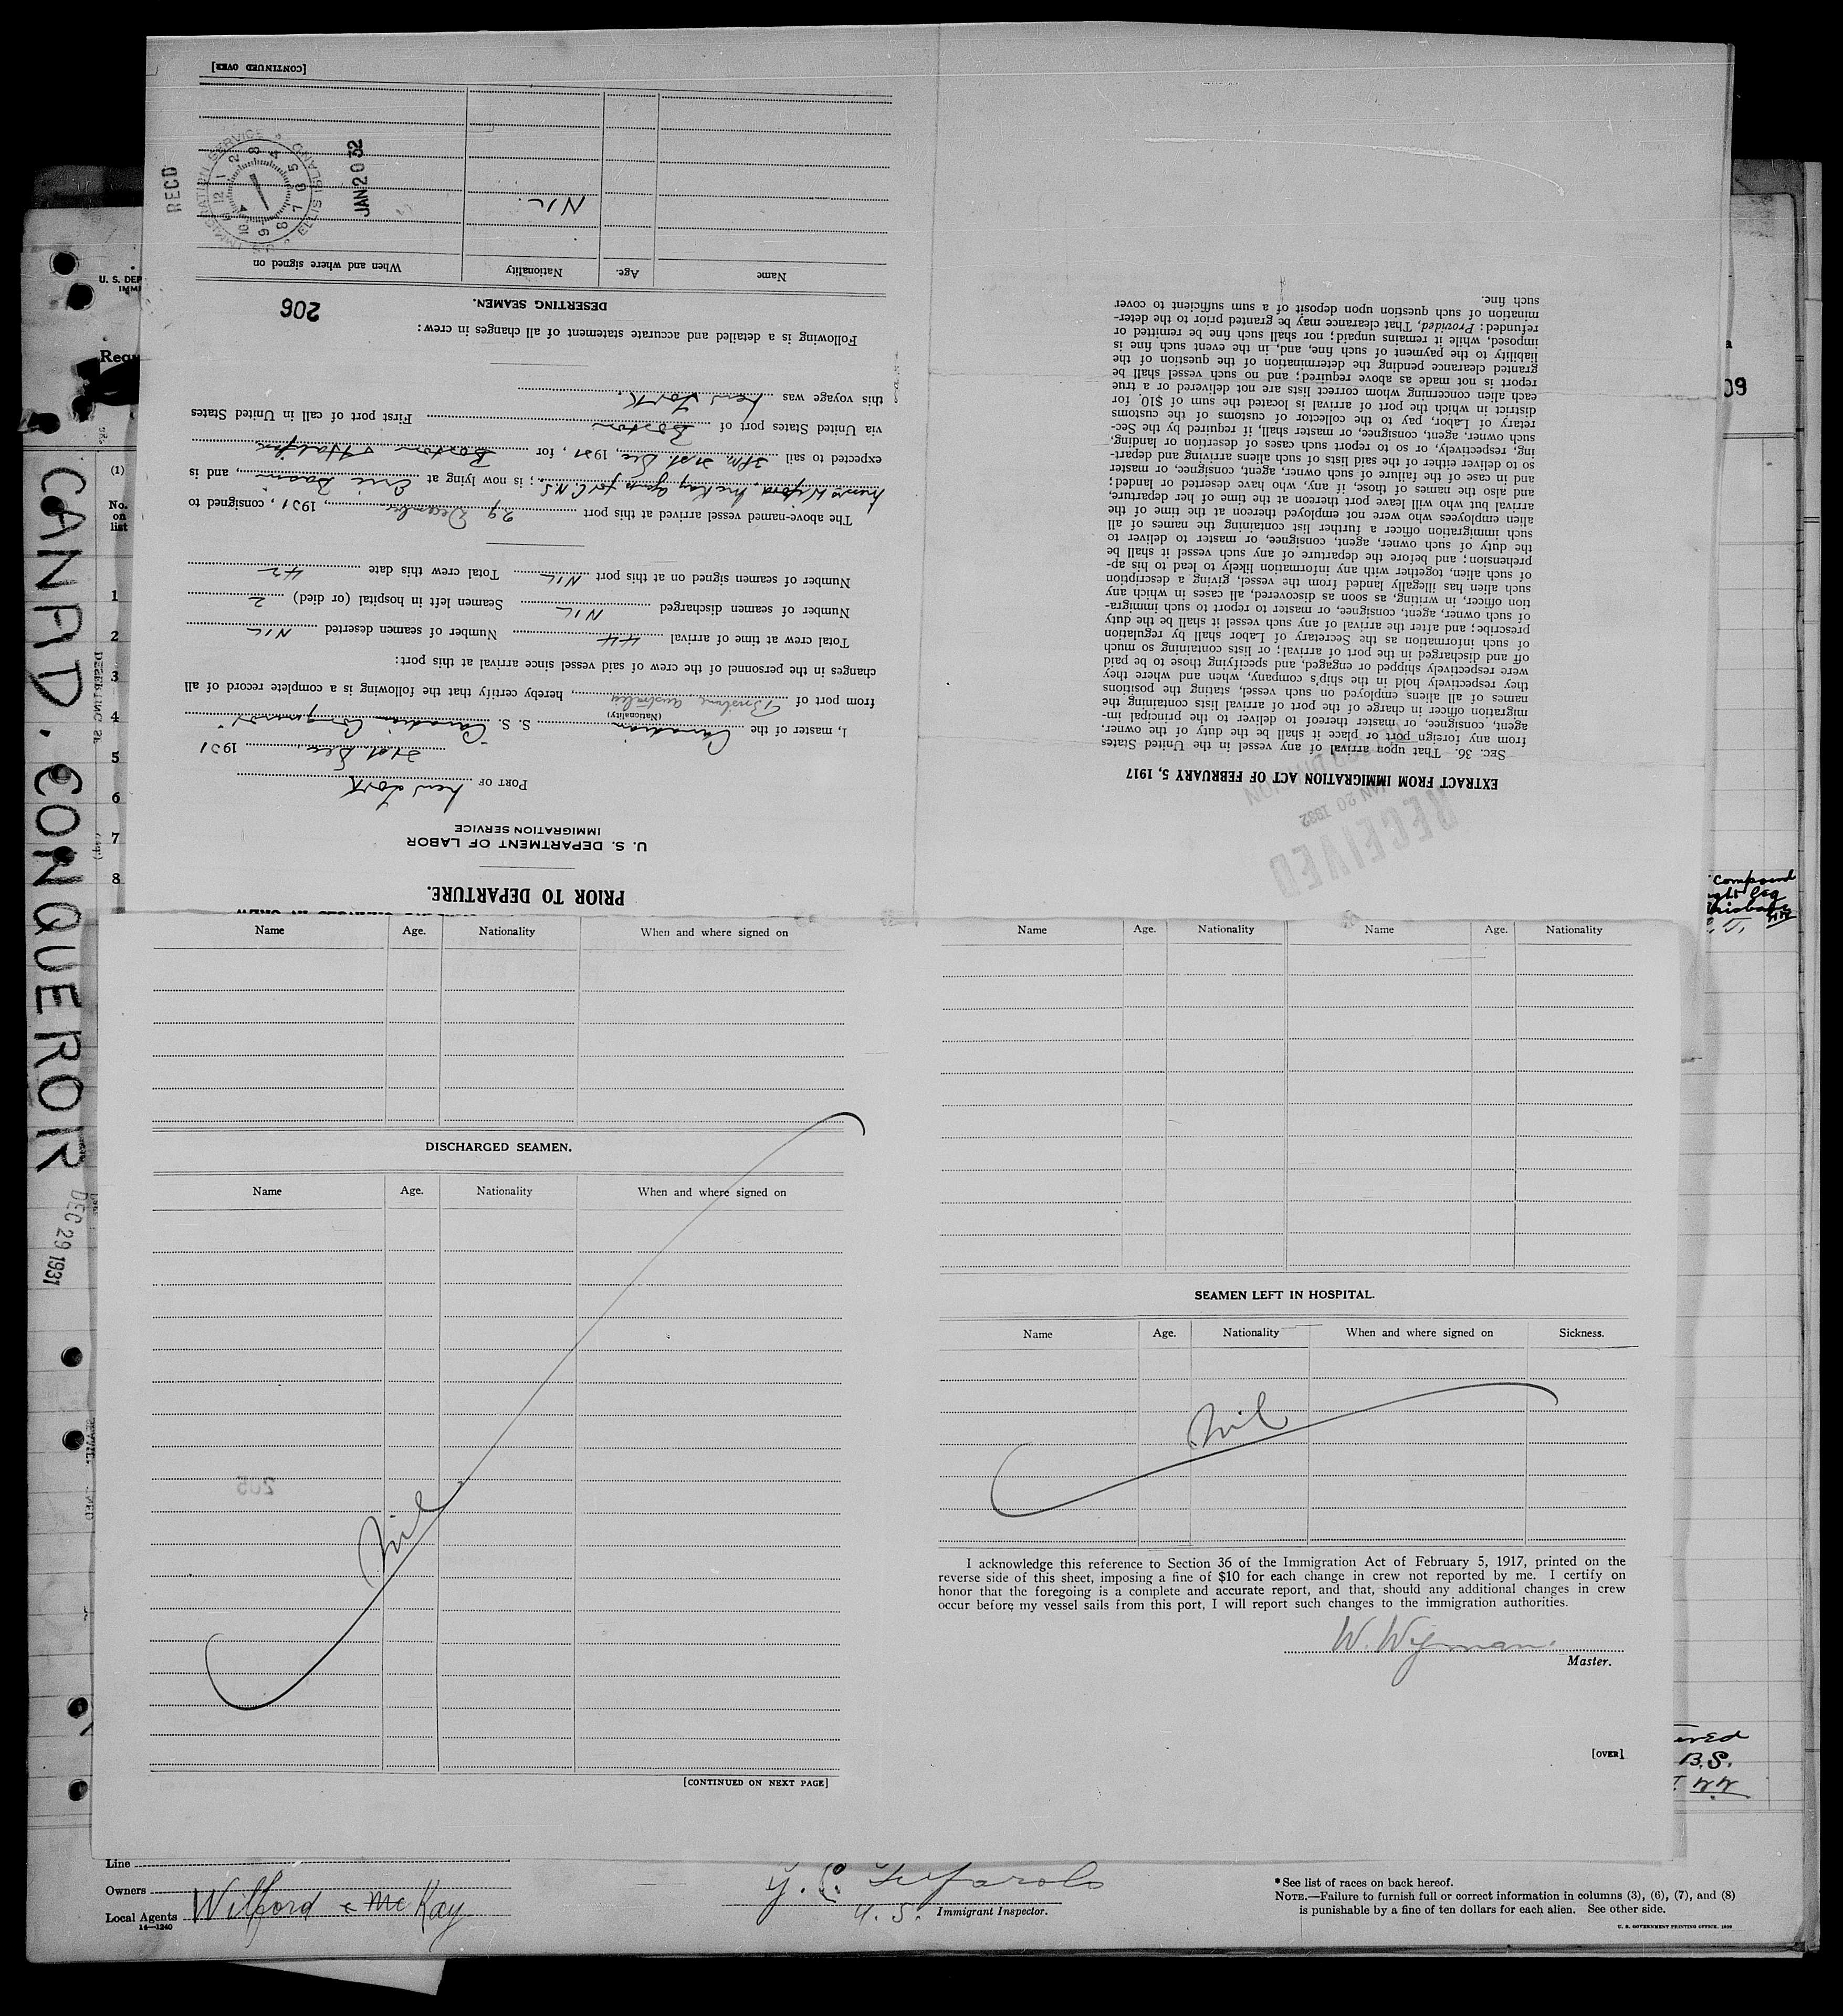 CANAD. CONQUEROR
DEC 29 1931
U. S. DEP
IMMI
(1)
No.
on
list
1
2
3
4
5
6
7
8
09
PRIOR TO DEPARTURE.
U. S. DEPARTMENT OF LABOR
IMMIGRATION SERVICE
PORT OF New York
31st Dec. 1931
I, master of the Canadian S. S. "Canadian Conqueror"
(Nationality)
from port of Brisbane, Australia, hereby certify that the following is a complete record of all
changes in the personnel of the crew of said vessel since arrival at this port:
Total crew at time of arrival 44 Number of seamen deserted NIL
Number of seamen discharged NIL Seamen left in hospital (or died) 2
Number of seamen signed on at this port NIL Total crew this date 42
The above-named vessel arrived at this port 29 December, 1931, consigned to
McKay agents for C.N.S.; is now lying at Erie Basin, and is
expected to sail 31st Dec. 1931, for Boston & Halifax
via United States port of Boston First port of call in United States
this voyage was New York.
Following is a detailed and accurate statement of all changes in crew:
206
DESERTING SEAMEN.
Name Age. Nationality When and where signed on
NIL.
RECD
U.S. IMMIGRATION SERVICE ELLIS ISLAND
1 2 3 4 5 6 7 8 9 10 12
JAN 20 32
[CONTINUED OVER]
EXTRACT FROM IMMIGRATION ACT OF FEBRUARY 5, 1917
RECEIVED
JAN 20 1932
SEC. 36. That upon arrival of any vessel in the United States
from any foreign port or place it shall be the duty of the owner,
agent, consignee, or master thereof to deliver to the principal im-
migration officer in charge of the port of arrival lists containing the
names of all aliens employed on such vessel, stating the positions
they respectively hold in the ship's company, when and where they
were respectively shipped or engaged, and specifying those to be paid
off and discharged in the port of arrival; or lists containing so much
of such information as the Secretary of Labor shall by regulation
prescribe; and after the arrival of any such vessel it shall be the duty
of such owner, agent, consignee, or master to report to such immigra-
tion officer, in writing, as soon as discovered, all cases in which any
such alien has illegally landed from the vessel, giving a description
of such alien, together with any information likely to lead to his ap-
prehension; and before the departure of any such vessel it shall be
the duty of such owner, agent, consignee, or master to deliver to
such immigration officer a further list containing the names of all
alien employees who were not employed thereon at the time of the
arrival but who will leave port thereon at the time of her departure,
and also the names of those, if any, who have deserted or landed;
and in case of the failure of such owner, agent, consignee, or master
so to deliver either of the said lists of such aliens arriving and depart-
ing, respectively, or so to report such cases of desertion or landing,
such owner, agent, consignee, or master shall, if required by the Sec-
retary of Labor, pay to the collector of customs of the customs
district in which the port of arrival is located the sum of $10 for
each alien concerning whom correct lists are not delivered or a true
report is not made as above required; and no such vessel shall be
granted clearance pending the determination of the question of the
liability to the payment of such fine, and, in the event such fine is
imposed, while it remains unpaid; nor shall such fine be remitted or
refunded: Provided, That clearance may be granted prior to the deter-
mination of such question upon deposit of a sum sufficient to cover
such fine.
Name Age. Nationality When and where signed on
DISCHARGED SEAMEN.
Name Age. Nationality When and where signed on
nil
205
[CONTINUED ON NEXT PAGE]
Name Age. Nationality Name Age. Nationality
SEAMEN LEFT IN HOSPITAL.
Name Age. Nationality When and where signed on Sickness.
nil
I acknowledge this reference to Section 36 of the Immigration Act of February 5, 1917, printed on the
reverse side of this sheet, imposing a fine of $10 for each change in crew not reported by me. I certify on
honor that the foregoing is a complete and accurate report, and that, should any additional changes in crew
occur before my vessel sails from this port, I will report such changes to the immigration authorities.
W. Wyman.
Master.
[OVER]
Compound
Brisbane
B.S.
Line
Owners
Local Agents Wilford & McKay
14—1240
U. S. Immigrant Inspector.
* See list of races on back hereof.
NOTE.—Failure to furnish full or correct information in columns (3), (6), (7), and (8)
is punishable by a fine of ten dollars for each alien. See other side.
U. S. GOVERNMENT PRINTING OFFICE. 1929